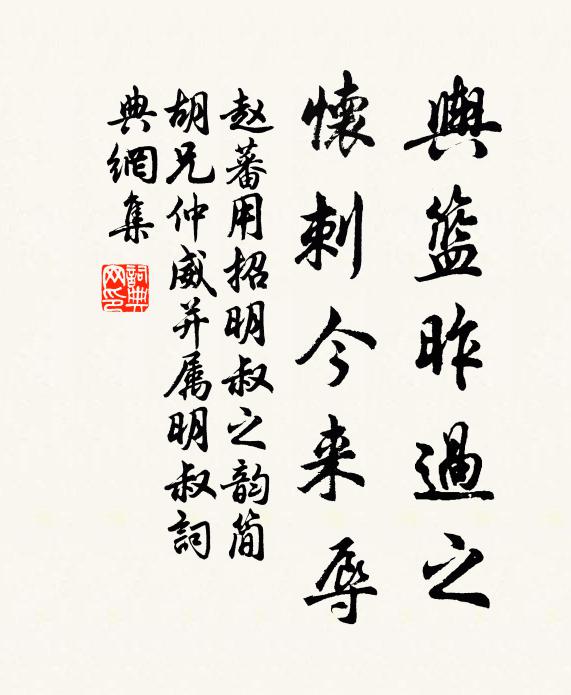 輿籃昨過之
懷刺今来辱
赵蕃用招明叔之韵简
胡兄仲威并属明叔詞
典網集
詞典网印